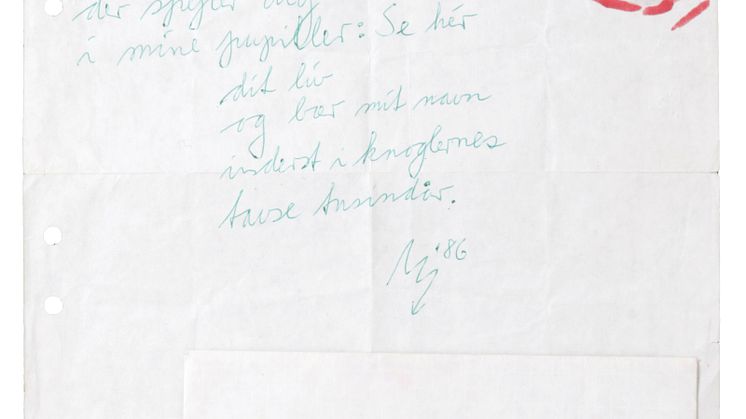 der spejler dig
i mine pupiller: Se hér
dit liv
og bær mit navn
inderst i knoglernes
tavse tusindår.
'86